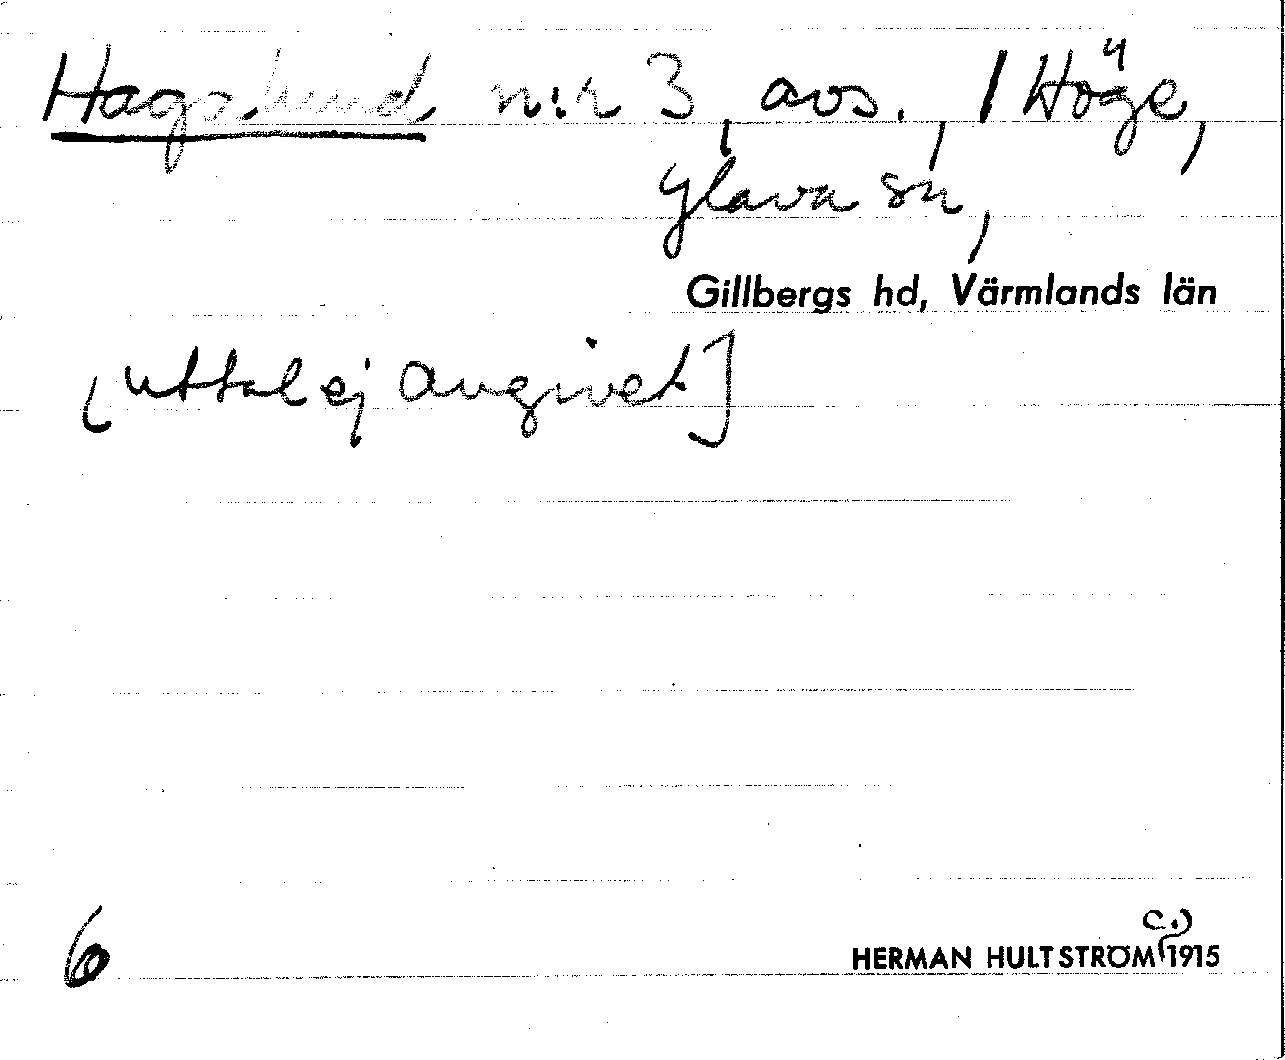 Hagslund n:r 3, avs., / Höge,
Glava sn,
Gillbergs hd, Värmlands län
[uttal ej angivet]
6
HERMAN HULTSTRÖM (c.) 1915